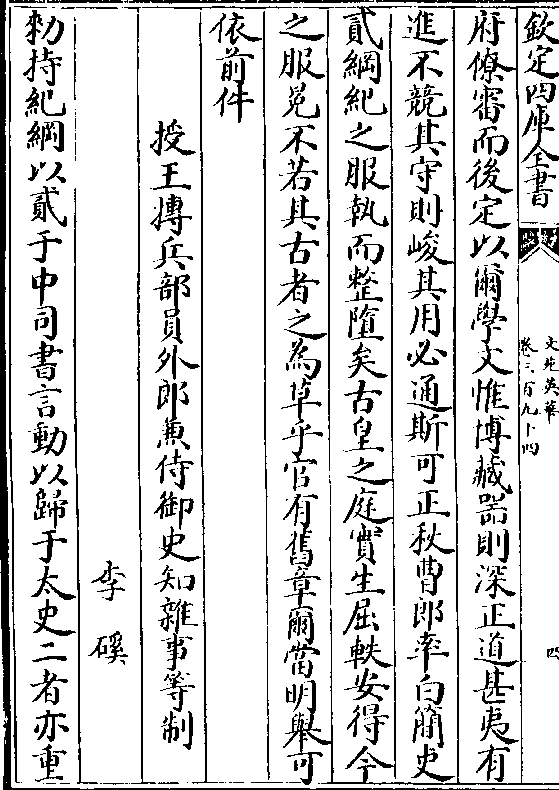 欽定四庫全書
文苑英華
卷三百九十四
四
府僚審而後定以爾學文惟博藏器則深正道甚夷有
進不競其守則峻其用必通斯可正秋曹郎率白簡史
貳綱紀之服執而整墮矣古皇之庭實生屈軼安得今
之服兔不若其古者之為草乎官有舊章爾當明舉可
依前件
授王摶兵部員外郎兼侍御史知雜事等制
李磎
勅持紀綱以貳于中司書言動以歸于太史二者亦重